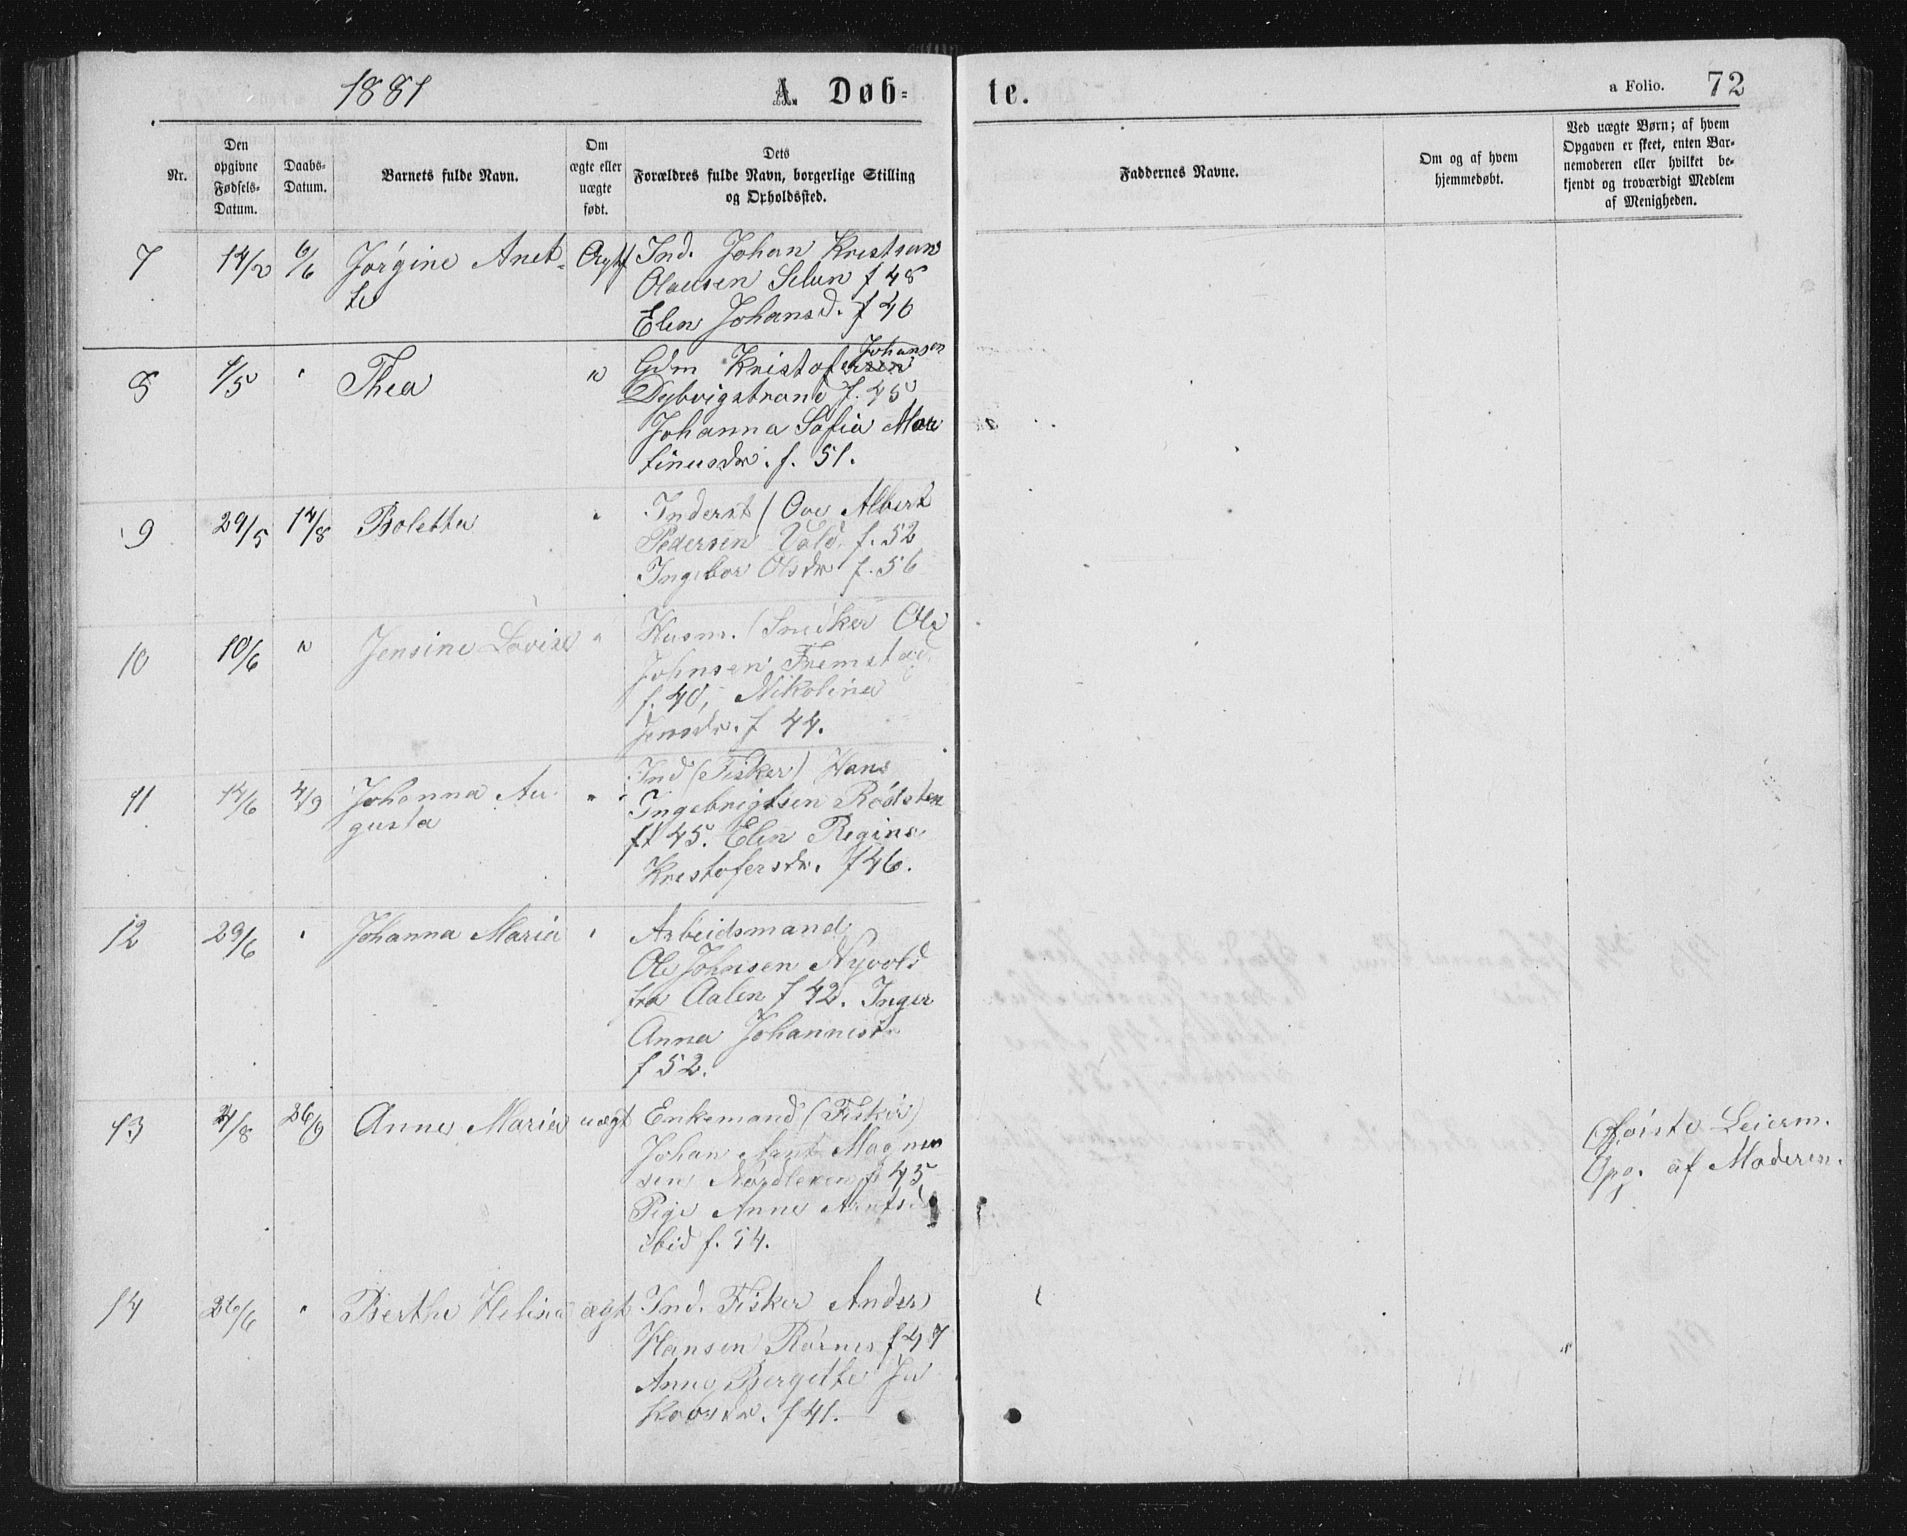 1881
A. Døb-
te.
a Folio. 72
Nr.
Den opgivne Fødsels-Datum.
Daabs-Datum.
Barnets fulde Navn.
Om ægte eller uægte født.
Dets Forældres fulde Navn, borgerlige Stilling og Opholdssted.
Faddernes Navne.
Om og af hvem hjemmedøbt.
Ved uægte Børn; af hvem Opgaven er skeet, enten Barnemoderen eller hvilket bekjendt og troværdigt Medlem af Menigheden.
7 14/2 6/6 Jørgine Anet- Ægtf Ind. Johan Krestian
te Olausen Selun f 48
Elen Johansd. f 46
8 1/5 " Thea " Gdm Kristofer Johansen
Dybvigstrand f. 45
Johanna Sofia Mar
tinusdr. f. 51.
9 29/5 14/8 Boletta " Inderst / Ove Albert
Pedersen Vold f. 52
Ingebor Olsdr f. 56
10 10/6 " Jensine Lovise " Husm. (Snedker Ole
Johnsen Fremstad
f. 40, Nikolina
Jensdr. f 44.
11 14/6 4/9 Johanna Au " Ind (Fisker) Hans
gusta Ingebrigtsen Rødsten
f 45. Elen Regine
Krestofersdr. f 46.
12 29/6 " Johanna Maria " Arbeidsmand
Ole Johnsen Nyvold
fra Aalen f 42. Inger
Anna Johannesdr
f 52.
13 /8 26/9 Anne Maria uægt Enkemand (Fisker)
Johan Arnt Magnus
sen Nordleven f 45,
Pige Anne Arntsd
ibid f. 54.
Første Leierm.
Opg. af Moderen.
14 26/6 " Berthe Helisia ægt Ind. Fisker Anders
Hansen Rørnes f 47
Anne Bergitte Ja
kobsdr. f 41.